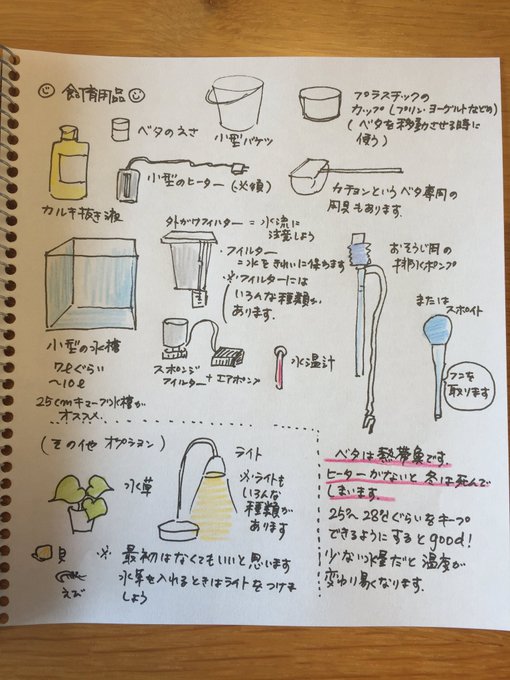 飼育用品
ベタのえさ
小型バケツ
プラスチックの
カップ(プリン・ヨーグルトなどの)
(ベタを移動させる時に
使う)
カルキ抜き液
小型のヒーター(必須)
カチョンというベタ専用の
用具もあります.
外がけフィルター = 水流に
注意しよう
・フィルター
=水をきれいに保ちます
※フィルターには
いろんな種類が
あります。
おそうじ用の
排水ポンプ
または
スポイト
フンを
取ります
小型の水槽
7ℓぐらい
〜10ℓ
25cmキューブ水槽が
オススメ.
スポンジ
フィルター + エアポンプ
水温計
(その他 オプション)
水草
ライト
※ライトも
いろんな
種類が
あります
貝
えび
※ 最初はなくてもいいと思います
水草を入れるときはライトをつけま
しょう
ベタは熱帯魚です.
ヒーターがないと冬は死んで
しまいます.
25°〜28°ぐらいをキープ
できるようにするとgood!
少ない水量だと温度が
変わり易くなります.